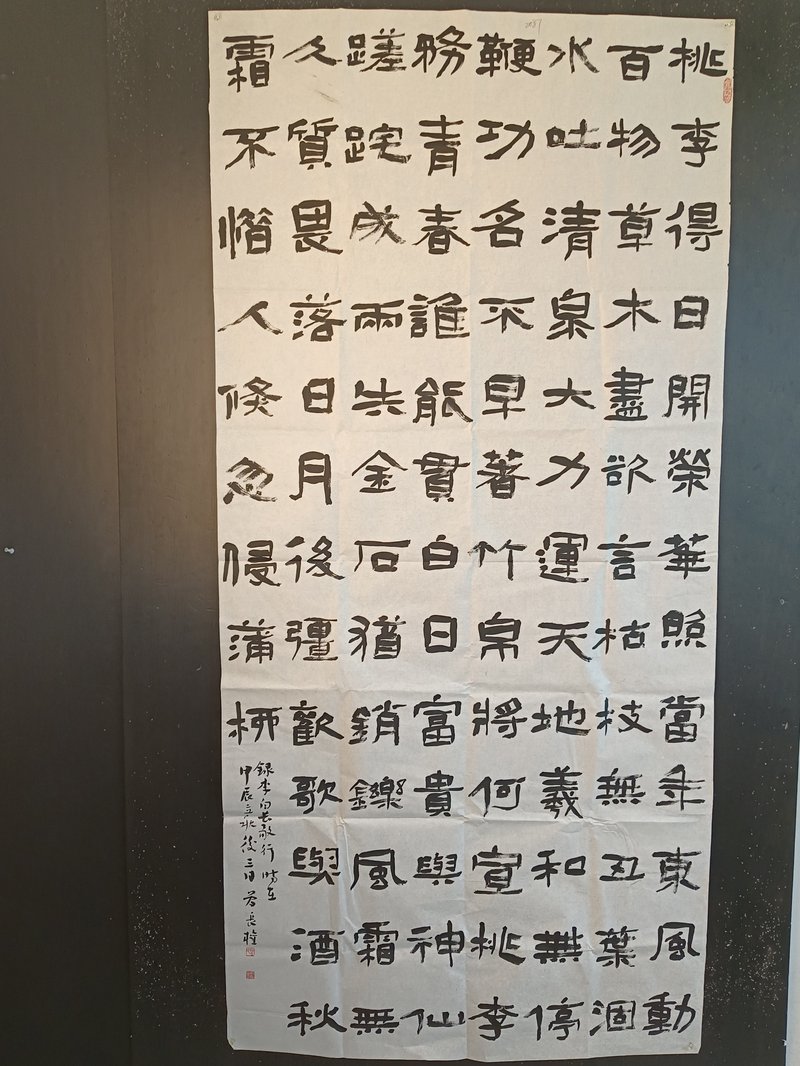 桃李得日開榮華照當年東風動
百物草木盡欲言枯枝無丑葉涸
水吐清泉大力運天地羲和無停
鞭功名不早著竹帛將何宣桃李
務青春誰能貫白日富貴與神仙
蹉跎成兩失金石猶銷鑠風霜無
久質畏落日月後彊歡歌與酒秋
霜不惜人倏忽侵蒲柳
録李白長歌行時在
甲辰立秋後三日